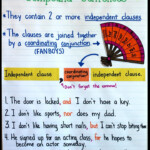 They contain 2 or more independent clauses
The clauses are joined together
by a coordinating conjunction
(FANBOYS)
Independent clause
coordinating
conjunction
independent clause.
Don't forget the comma!
1. The door is locked, and I don't have a key.
2. I don't like sports, nor does my dad.
3. I don't like having short nails, but I can't stop biting them
4. He signed up for an acting class, for he hopes to
become an actor someday.